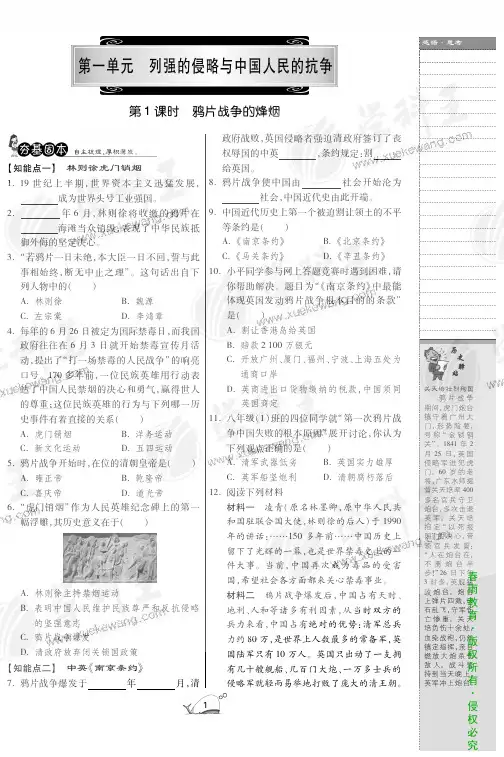 第一单元 列强的侵略与中国人民的抗争
第1课时 鸦片战争的烽烟
夯基固本 自主梳理,厚积薄发。
【知能点一】 林则徐虎门销烟
1. 19 世纪上半期,世界资本主义迅猛发展,
成为世界头号工业强国。
2. 年 6 月,林则徐将收缴的鸦片在
海滩当众销毁,表现了中华民族抵
御外侮的坚定决心。
3. “若鸦片一日未绝,本大臣一日不回,誓与此
事相始终,断无中止之理”。这句话出自下
列人物中的( )
A. 林则徐 B. 魏源
C. 左宗棠 D. 李鸿章
4. 每年的 6 月 26 日被定为国际禁毒日,而我国
政府往往在 6 月 3 日就开始禁毒宣传月活
动,提出了“打一场禁毒的人民战争”的响亮
口号。170 多年前,一位民族英雄用行动表
达了中国人民禁烟的决心和勇气,赢得世人
的尊重;这位民族英雄的行为与下列哪一历
史事件有着直接的关系( )
A. 虎门销烟 B. 洋务运动
C. 新文化运动 D. 五四运动
5. 鸦片战争开始时,在位的清朝皇帝是( )
A. 雍正帝 B. 乾隆帝
C. 嘉庆帝 D. 道光帝
6. “虎门销烟”作为人民英雄纪念碑上的第一
幅浮雕,其历史意义在于( )
A. 林则徐主持禁烟运动
B. 表明中国人民维护民族尊严和反抗侵略
的坚强意志
C. 鸦片战争爆发
D. 清政府放弃闭关锁国政策
【知能点二】 中英《南京条约》
7. 鸦片战争爆发于 年 月,清
政府战败,英国侵略者强迫清政府签订了丧
权辱国的中英 ,条约规定:割
给英国。
8. 鸦片战争使中国由 社会开始沦为
社会,中国近代史由此开端。
9. 中国近代历史上第一个被迫割让领土的不平
等条约是( )
A.《南京条约》 B.《北京条约》
C.《马关条约》 D.《辛丑条约》
10. 小平同学参与网上答题竞赛时遇到困难,请
你帮助解决。题目为“《南京条约》中最能
体现英国发动鸦片战争根本目的的条款”
是( )
A. 割让香港岛给英国
B. 赔款 2 100 万银元
C. 开放广州、厦门、福州、宁波、上海五处为
通商口岸
D. 英商进出口货物缴纳的税款,中国须同
英国商定
11. 八年级(1)班的四位同学就“第一次鸦片战
争中国失败的根本原因”展开讨论,你认为
下列观点正确的是( )
A. 清军武器低劣 B. 英国实力雄厚
C. 英军船坚炮利 D. 清朝腐朽落后
12. 阅读下列材料
材料一 凌青(原名林墨卿,原中华人民共
和国驻联合国大使,林则徐的后人)于 1990
年的讲话:……150 多年前……中国历史上
留下了光辉的一幕,也是世界禁毒史上的一
件大事。当前,中国再次成为毒品的受害
国,希望社会各方面都来关心禁毒事业。
材料二 鸦片战争爆发后,中国占有天时、
地利、人和等诸多有利因素,从当时双方的
兵力来看,中国占有绝对的优势;清军总兵
力约 80 万,是世界上人数最多的常备军,英
国陆军只有 10 万人。英国只出动了一支拥
有几十艘舰船、几百门大炮、一万多士兵的
侵略军就轻而易举地打败了庞大的清王朝。
1
随语·思考
历史驿站
关天培壮烈殉国
鸦片战争
期间,虎门炮台
镇守着广州大
门,形势险要,
号称“金锁铜
关”。1841 年 2
月 25 日,英国
侵略军进犯虎
门。60 岁的老
将、广东水师提
督关天培率 400
春雨教育·版权所有·侵权必究